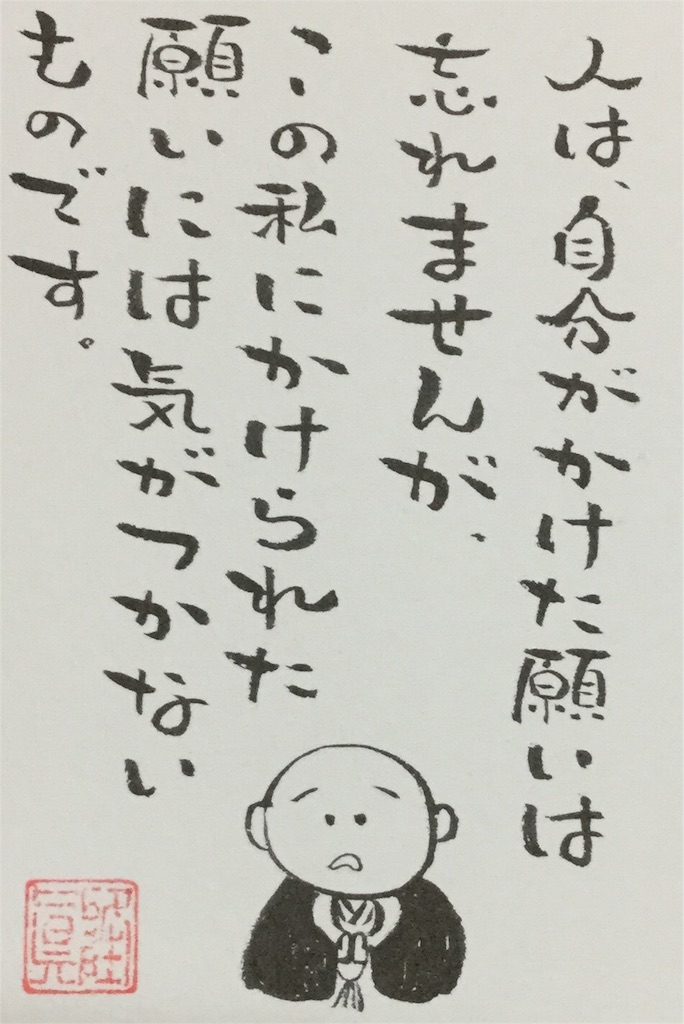 人は、自分がかけた願いは
忘れませんが、
この私にかけられた
願いには気がつかない
ものです。